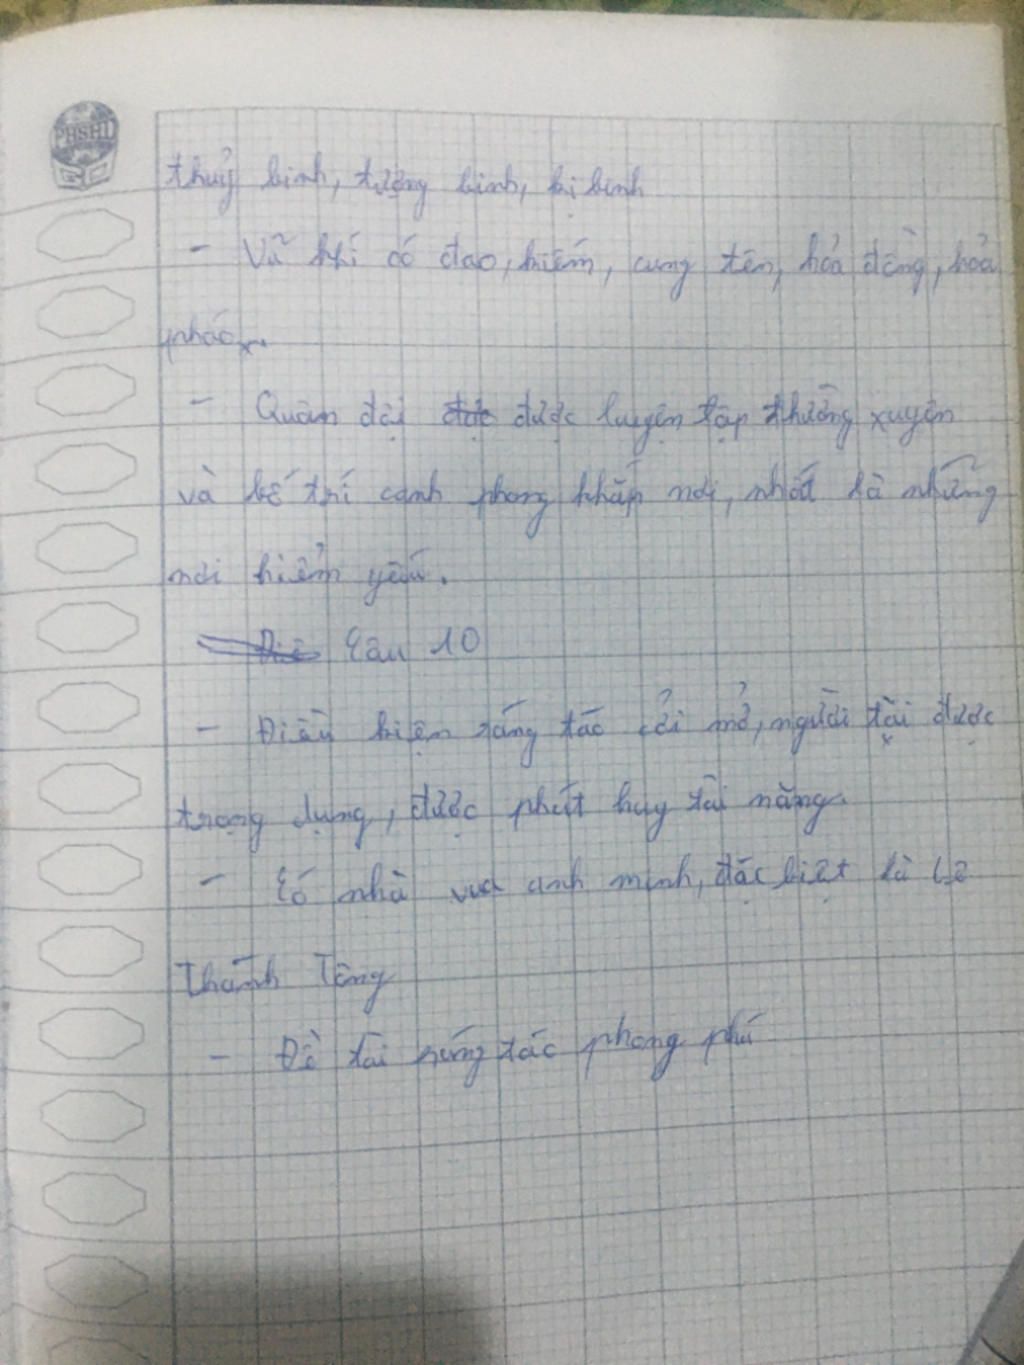 PHSHI
thuỷ binh, tượng binh, kị binh
- Vũ khí có đao, kiếm, cung tên, hỏa đồng, hỏa
pháo...
- Quân đội được luyện tập thường xuyên
và bố trí canh phong khắp nơi, nhất là những
nơi hiểm yếu.
Câu 10
- Điều kiện sáng tác cởi mở, người tài được
trọng dụng, được phát huy tài năng.
- Có nhà vua anh minh, đặc biệt là Lê
Thánh Tông
- Đề tài sáng tác phong phú